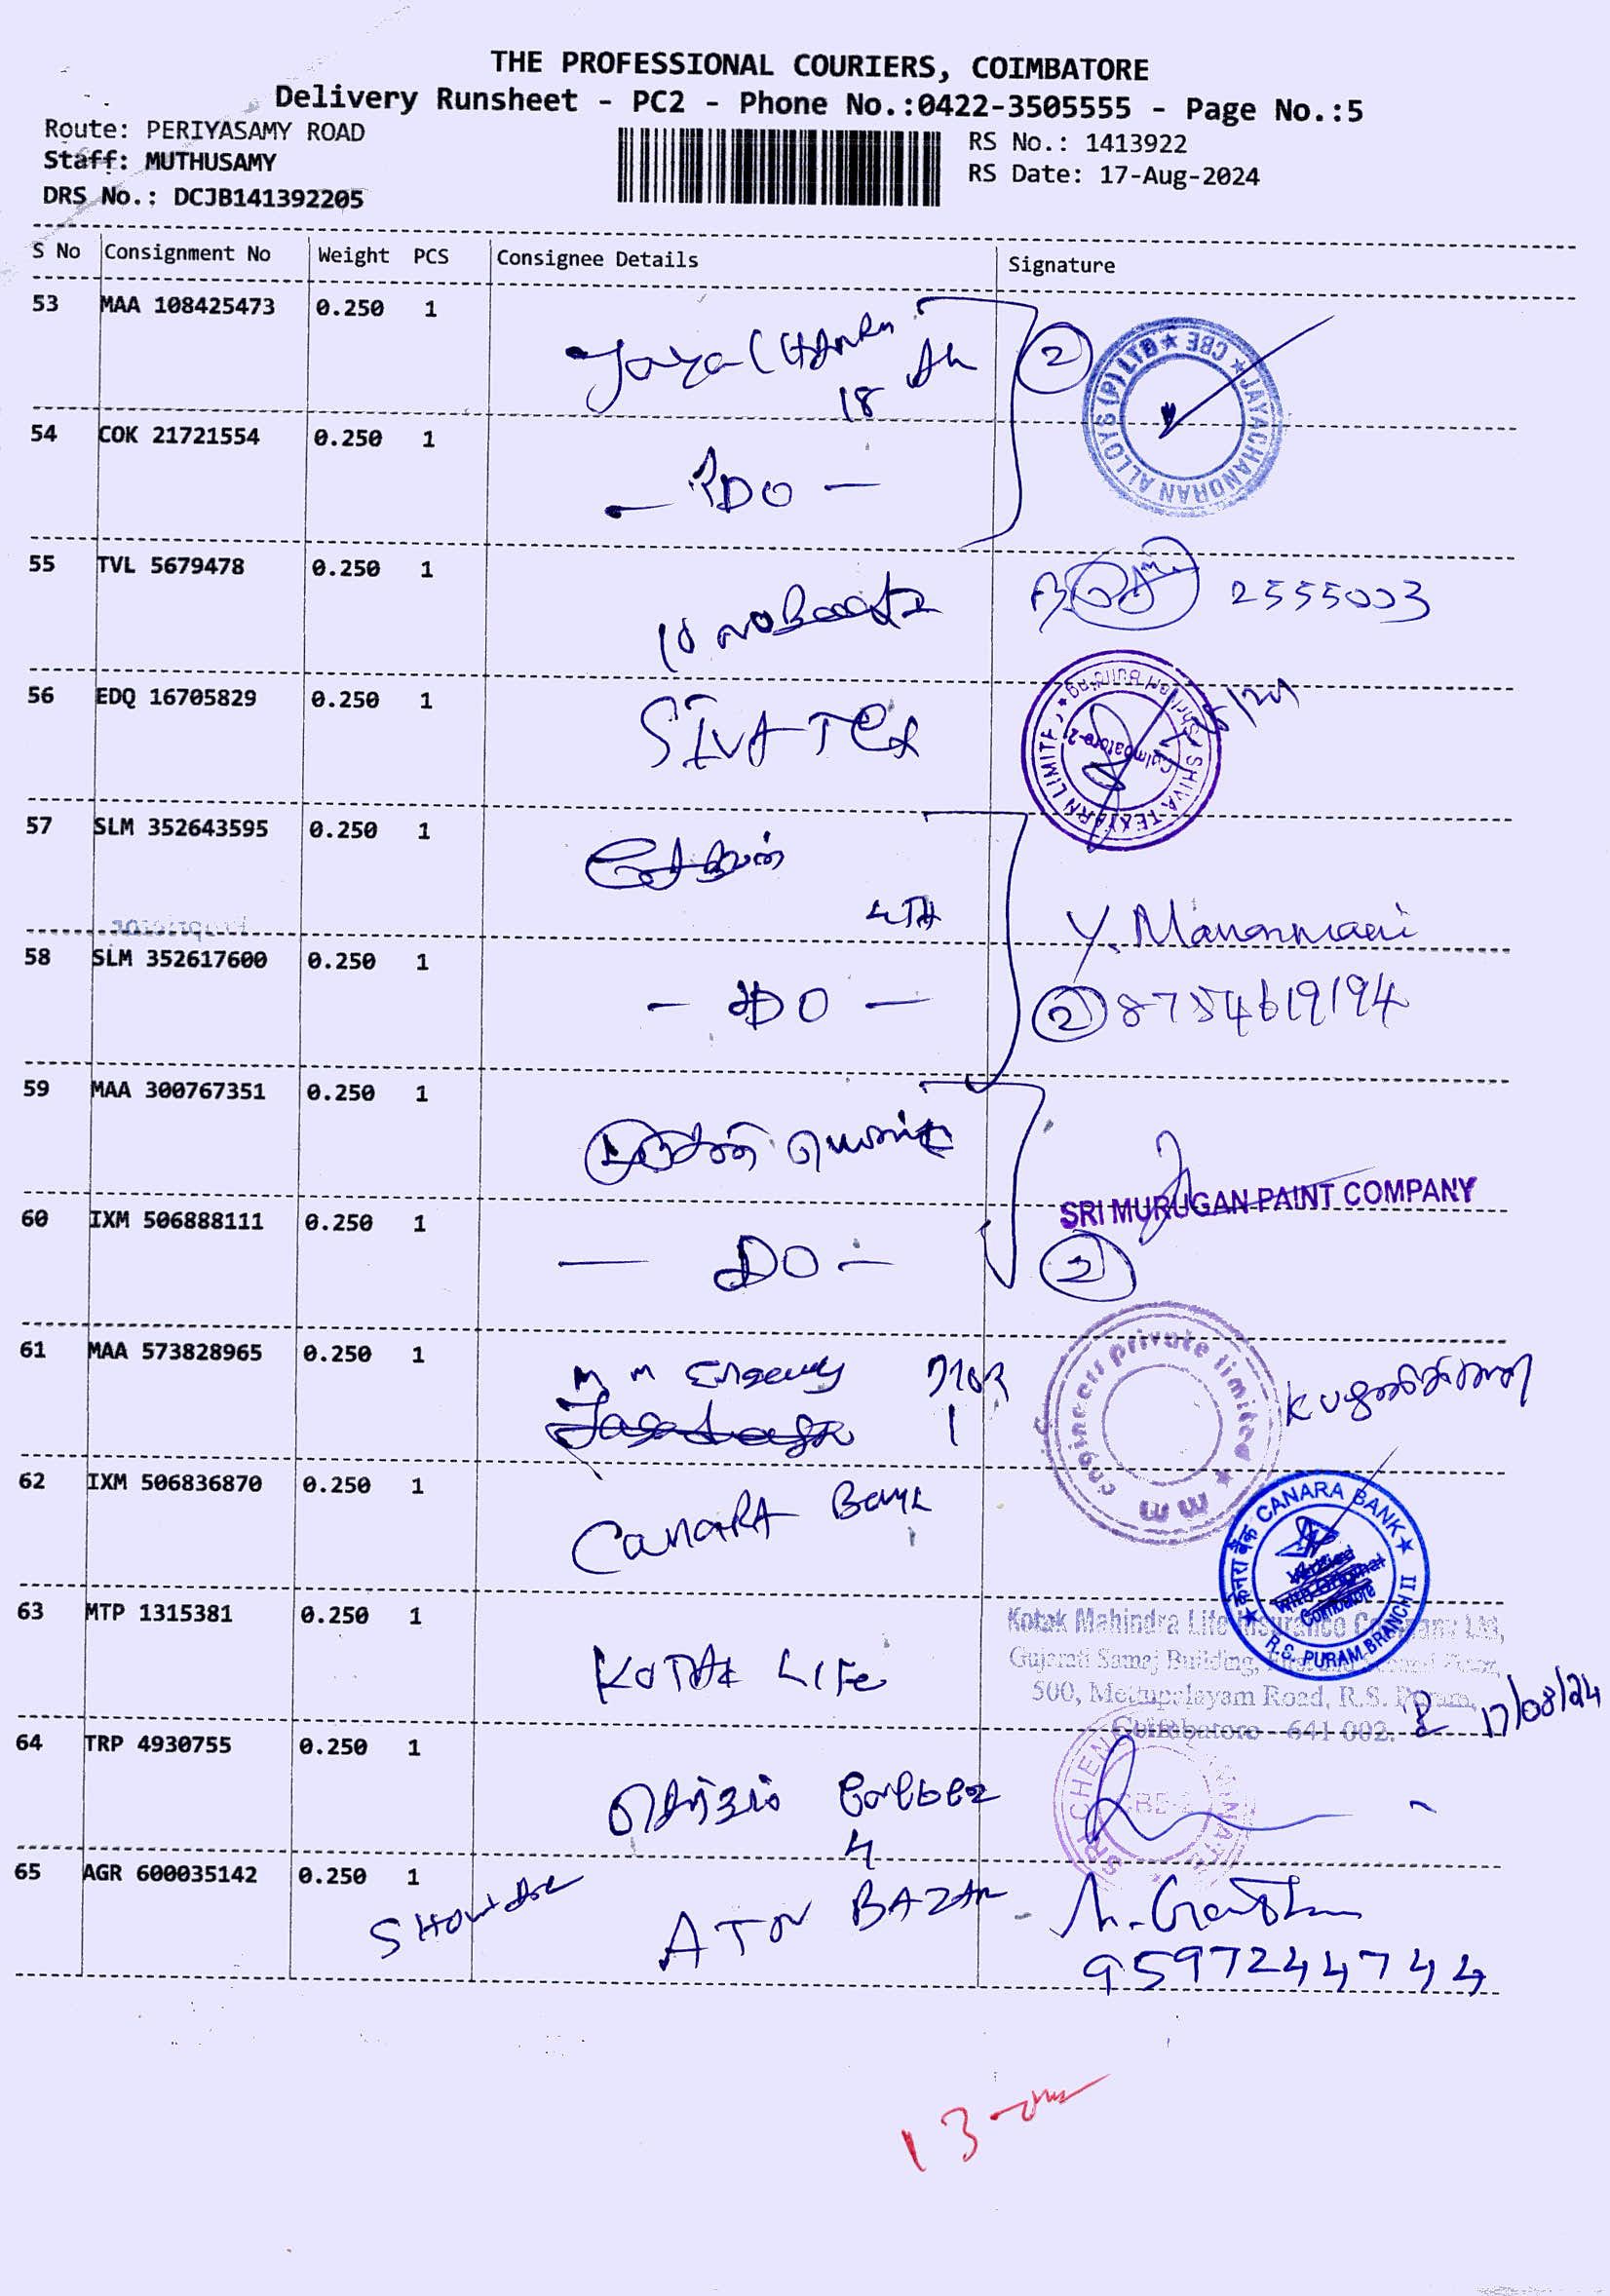 THE PROFESSIONAL COURIERS, COIMBATORE
Delivery Runsheet - PC2 - Phone No.:0422-3505555 - Page No.:5
Route: PERIYASAMY ROAD
RS No.: 1413922
Staff: MUTHUSAMY
RS Date: 17-Aug-2024
DRS No.: DCJB141392205
S No Consignment No Weight PCS Consignee Details Signature
53 MAA 108425473 0.250 1
18
2
JAYACHANDRAN ALLOYS (P) LTD ★ CBE ★
54 COK 21721554 0.250 1
- DO -
55 TVL 5679478 0.250 1
2555003
56 EDQ 16705829 0.250 1
SIVA TEX
SHIVA TEXYARN LIMITED
Coimbatore-2
57 SLM 352643595 0.250 1
Y. Manonmani
58 SLM 352617600 0.250 1
- DO -
2 8754619194
59 MAA 300767351 0.250 1
SRI MURUGAN PAINT COMPANY
60 IXM 506888111 0.250 1
- DO -
2
61 MAA 573828965 0.250 1
M M
1
mm engineers private limited ★
62 IXM 506836870 0.250 1
CANARA Bank
केनरा बैंक CANARA BANK ★
R.S. PURAM BRANCH II ★
Coimbatore
63 MTP 1315381 0.250 1
KOTAK LIFE
Kotak Mahindra Life Insurance Company Ltd,
Gujarati Samaj Building,
500, Mettupalayam Road, R.S. Puram,
Coimbatore - 641 002.
17/08/24
64 TRP 4930755 0.250 1
4
65 AGR 600035142 0.250 1
ATON BAZAR
9597244744
13